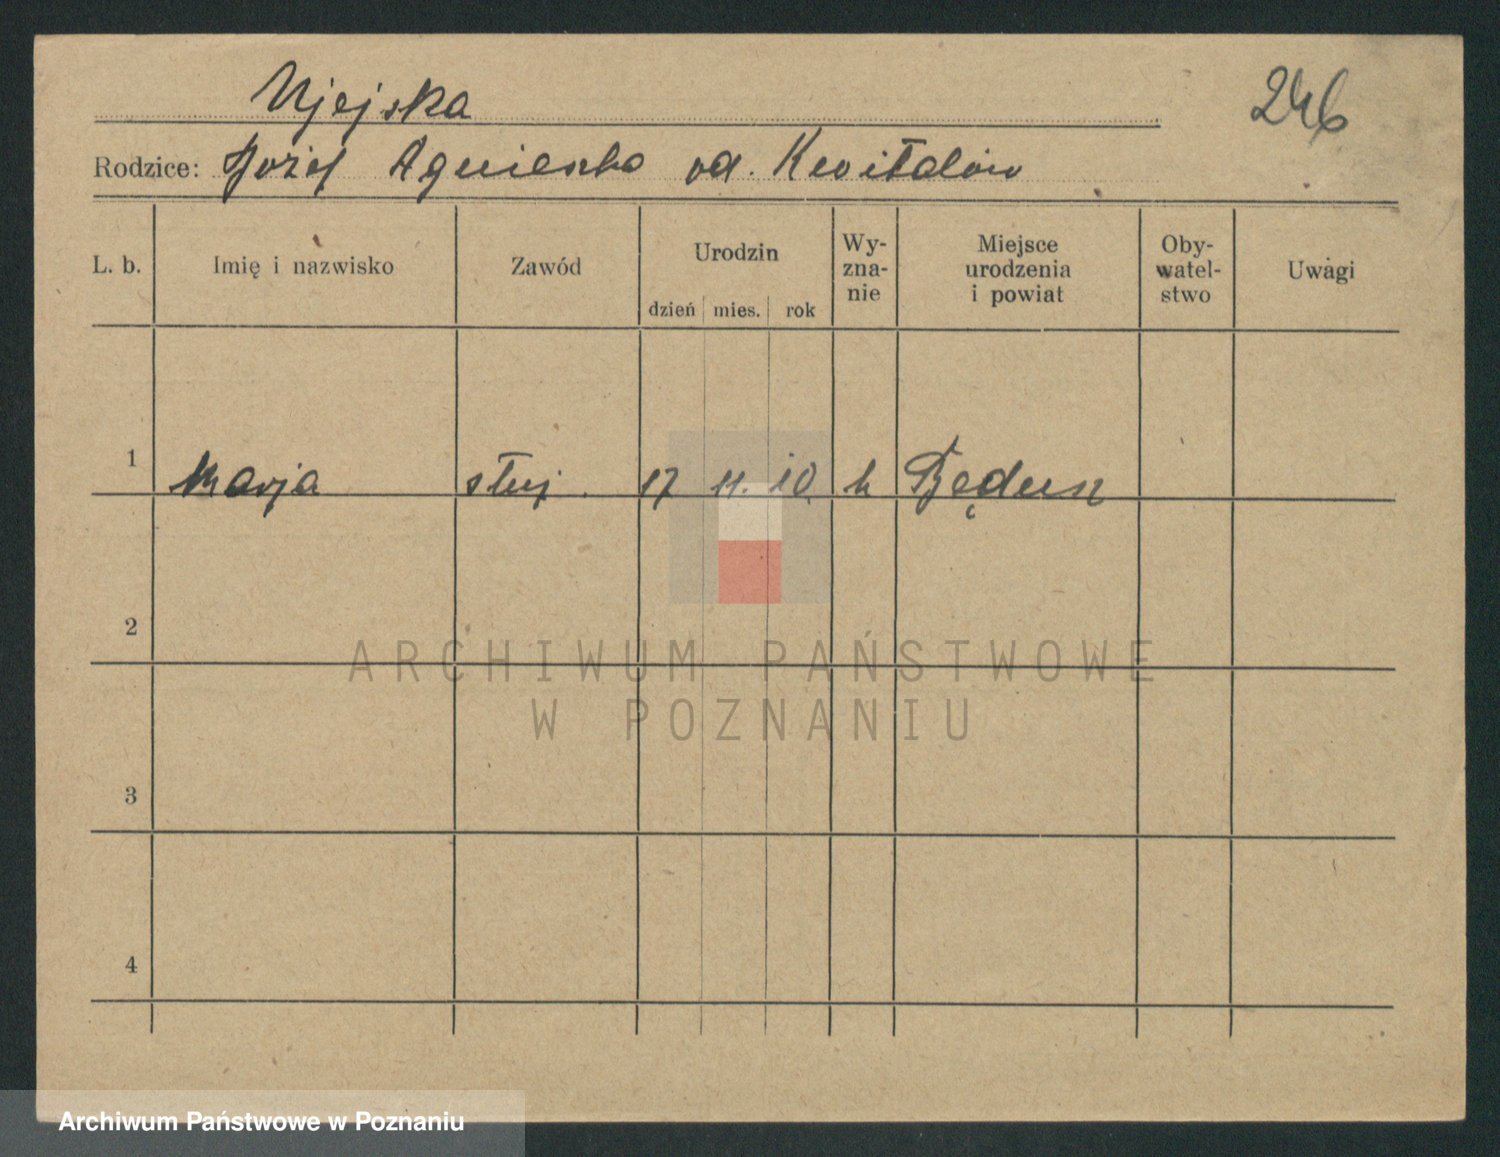 Ujejska
246
Rodzice: Józef Agnieszka od. Kwitalów
L. b. Imię i nazwisko Zawód Urodzin dzień mies. rok Wy-zna-nie Miejsce urodzenia i powiat Oby-watel-stwo Uwagi
1 Marja służ. 17 11. 10 k Będusz
2
ARCHIWUM PAŃSTWOWE
W POZNANIU
3
4
Archiwum Państwowe w Poznaniu